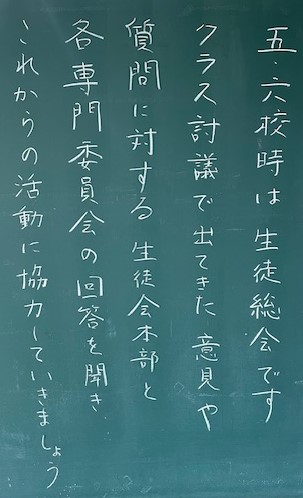 五・六校時は生徒総会です
クラス討議で出てきた意見や
質問に対する生徒会本部と
各専門委員会の回答を聞き
これからの活動に協力していきましょう